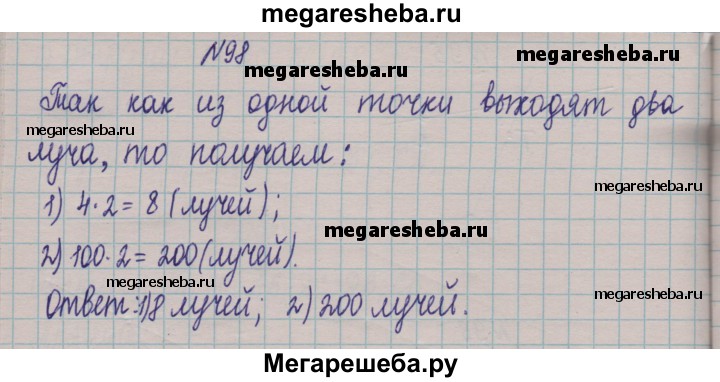 megaresheba.ru
N98
megaresheba.ru
megaresheba.ru
Так как из одной точки выходят два
megaresheba.ru
луча, то получаем:
megaresheba.ru
1) 4·2 = 8 (лучей);
megaresheba.ru
2) 100·2 = 200 (лучей).
megaresheba.ru
megaresheba.ru
megaresheba.ru
Ответ: 1) 8 лучей; 2) 200 лучей.
Мегарешеба.ру